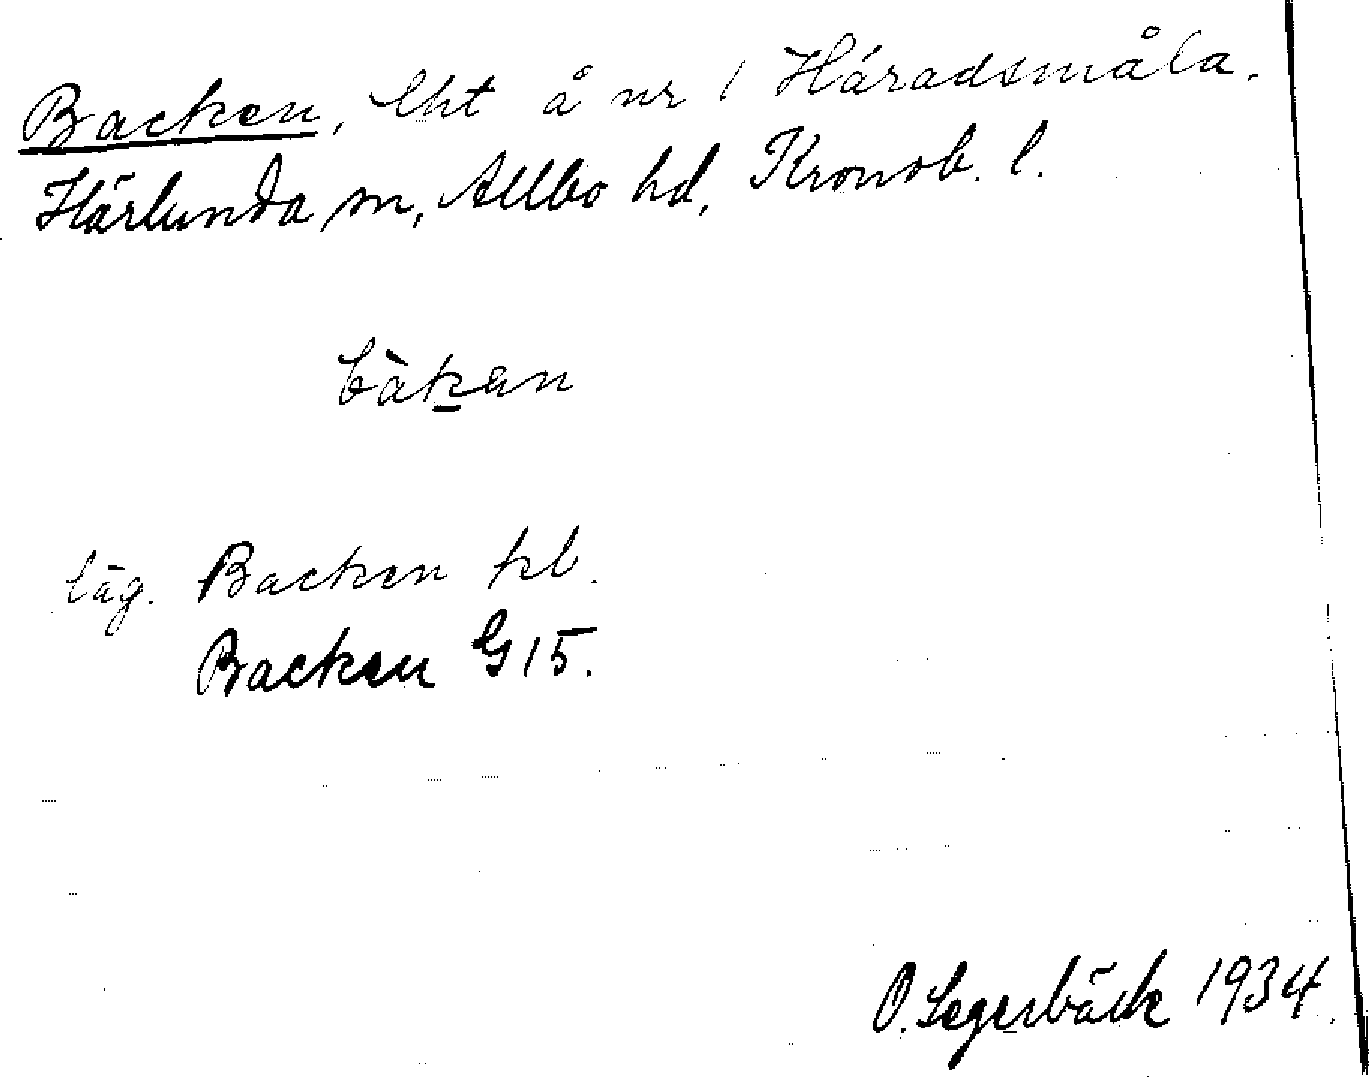 Backen, lht å nr 1 Häradsmåla.
Härlunda sn, Allbo hd, Kronob. l.
bàkan
läg. Backen kb.
Backen G 15.
O. Segerbäck 1934.